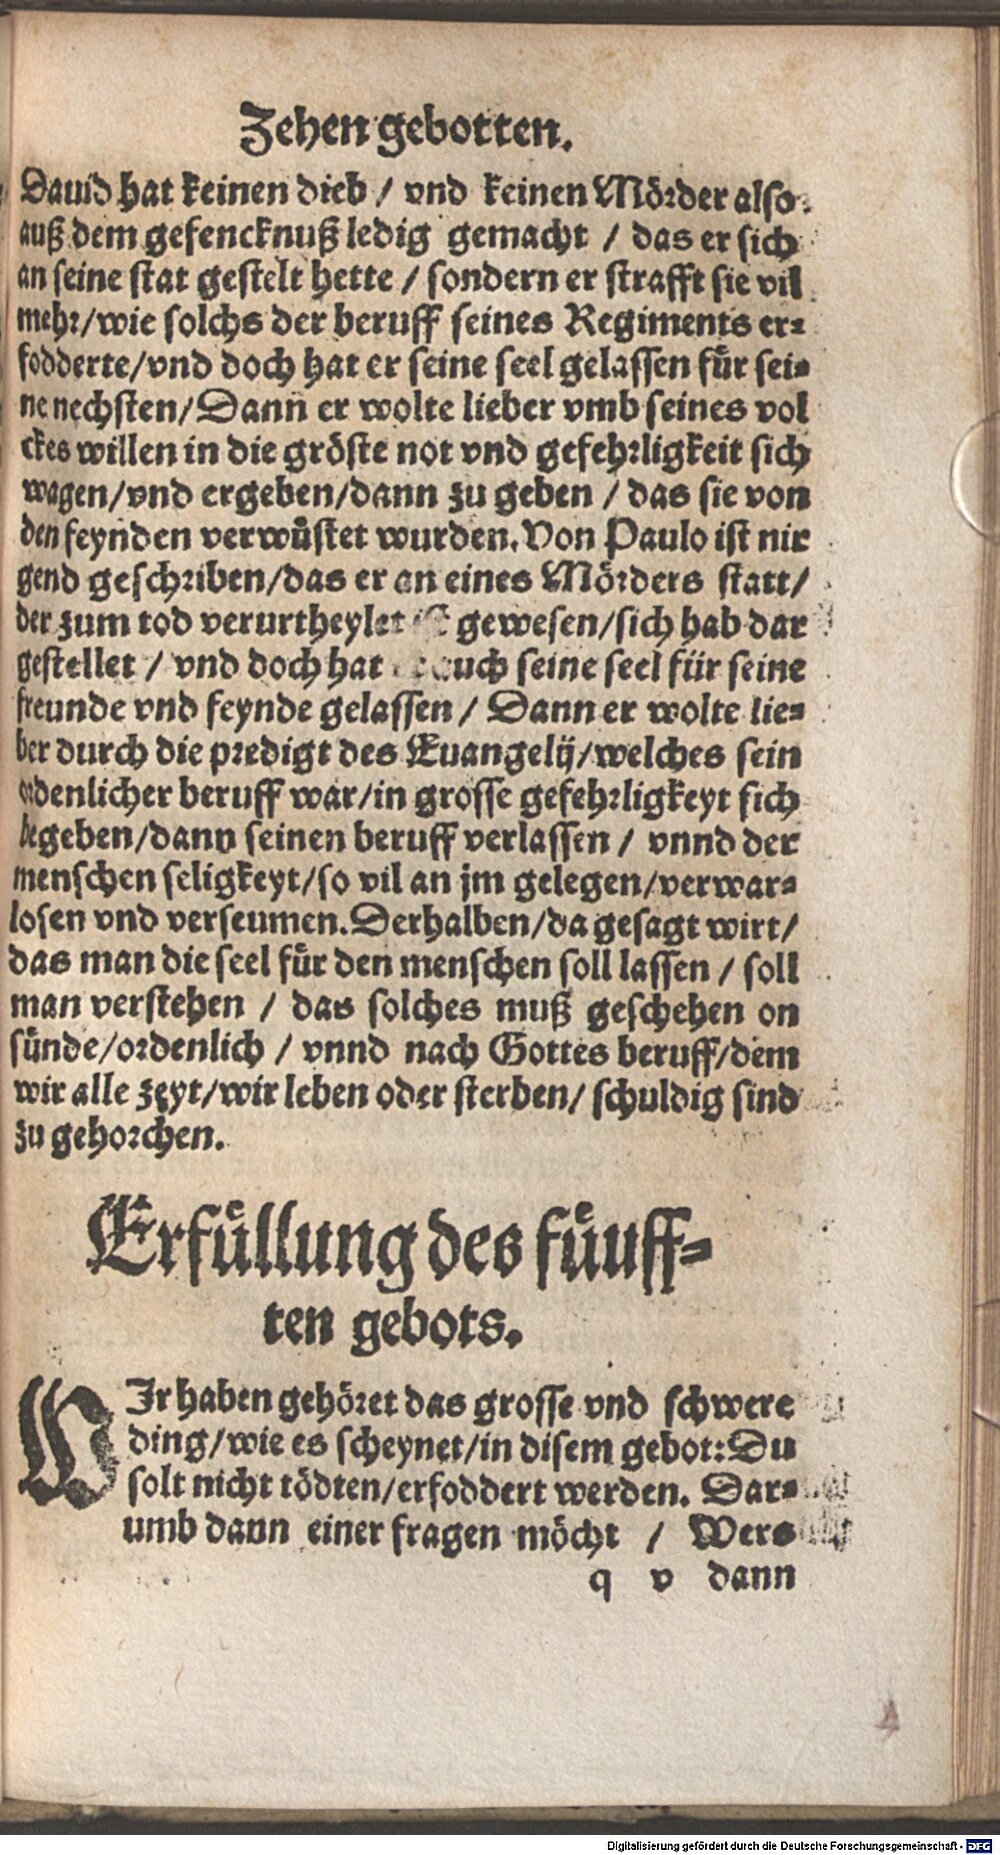 Zehen gebotten.
Dauid hat keinen dieb / vnd keinen Mörder also
auß dem gefencknuß ledig gemacht / das er sich
an seine stat gestelt hette / sondern er strafft sie vil
mehr/wie solchs der beruff seines Regiments er-
fodderte/vnd doch hat er seine seel gelassen fůr sei-
ne nechsten/Dann er wolte lieber vmb seines vol
ckes willen in die gröste not vnd gefehrligkeit sich
wagen/vnd ergeben/dann zu geben / das sie von
den feynden verwůstet wurden. Von Paulo ist nir
gend geschriben/das er an eines Mörders statt/
der zum tod verurtheylet gewesen/sich hab dar
gestellet / vnd doch hat auch seine seel für seine
freunde vnd feynde gelassen / Dann er wolte lie-
ber durch die predigt des Euangelij/welches sein
ordenlicher beruff war/in grosse gefehrligkeyt sich
begeben/dann seinen beruff verlassen / vnnd der
menschen seligkeyt/so vil an jm gelegen/verwar-
losen vnd verseumen. Derhalben/da gesagt wirt/
das man die seel fůr den menschen soll lassen / soll
man verstehen / das solches muß geschehen on
sünde/ordenlich / vnnd nach Gottes beruff/dem
wir alle zeyt/wir leben oder sterben/ schuldig sind
zu gehorchen.
Erfůllung des fůuff-
ten gebots.
WIr haben gehöret das grosse vnd schwere
ding/wie es scheynet/in disem gebot: Du
solt nicht tödten/erfoddert werden. Dar-
umb dann einer fragen möcht / Wers
q v dann
4
Digitalisierung gefördert durch die Deutsche Forschungsgemeinschaft - DFG